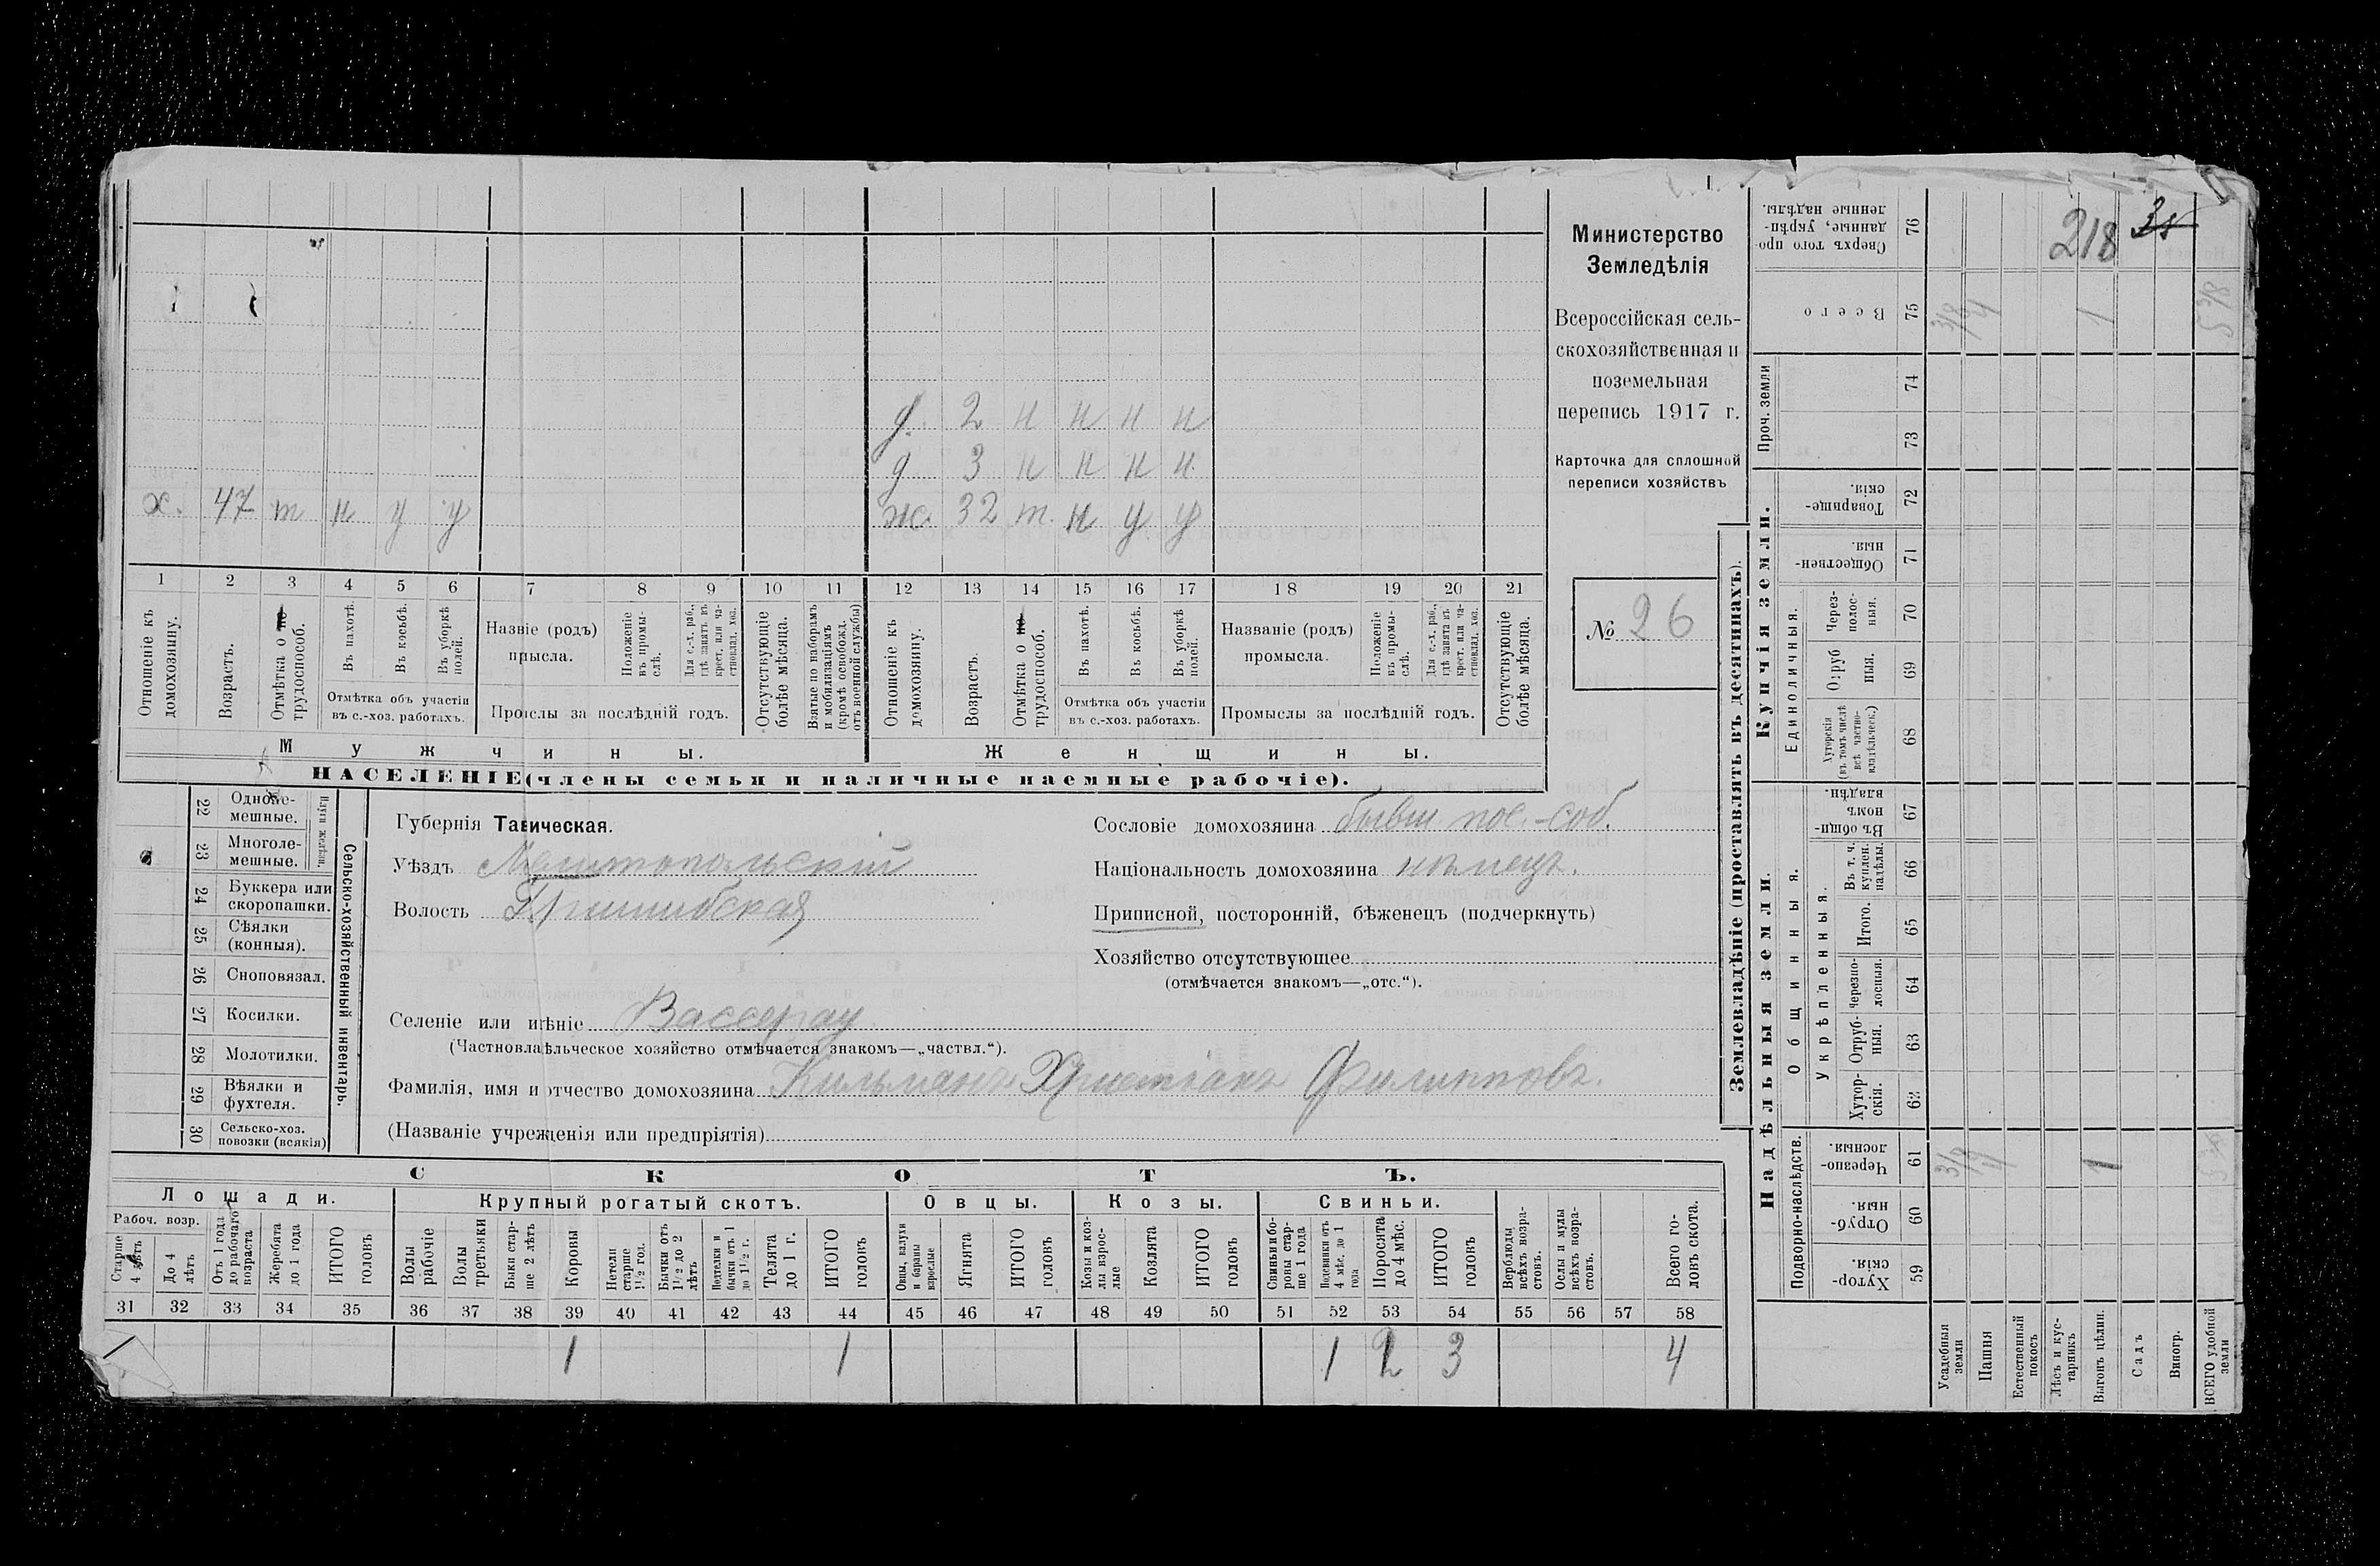 218 35
д. 2 н н н н
д 3 н н н н
х. 47 т н у у ж. 32 т. н у у
1 2 3 4 5 6 7 8 9 10 11 12 13 14 15 16 17 18 19 20 21
Отношеніе къ домохозяину.
Возрастъ.
Отмѣтка о не-трудоспособ.
Въ пахотѣ.
Въ косьбѣ.
Въ уборкѣ полей.
Отмѣтка объ участіи
въ с.-хоз. работахъ.
Назвіе (родъ)
прысла.
Положеніе въ промы-слѣ.
Для с.-х. раб., гдѣ занятъ въ крест. или ча-стновлад. хоз.
Прослы за послѣдній годъ.
Отсутствующіе болѣе мѣсяца.
Взятые по наборамъ и мобилизаціямъ (кромѣ освобожд. отъ военной службы)
Отношеніе къ домохозяину.
Возрастъ.
Отмѣтка о не-трудоспособ.
Въ пахотѣ.
Въ косьбѣ.
Въ уборкѣ полей.
Отмѣтка объ участіи
въ с.-хоз. работахъ.
Названіе (родъ)
промысла.
Положеніе въ промы-слѣ.
Для с.-х. раб., гдѣ занята въ крест. или ча-стновлад. хоз.
Промыслы за послѣдній годъ.
Отсутствующіе болѣе мѣсяца.
Мужчины. Женщины.
НАСЕЛЕНІЕ (члены семьи и наличные наемные рабочіе).
Министерство
Земледѣлія
Всероссійская сель-
скохозяйственная и
поземельная
перепись 1917 г.
Карточка для сплошной
переписи хозяйствъ
№ 26
22 Одноле-мешные.
23 Многоле-мешные.
Плуги желѣзн.
24 Буккера или скоропашки.
25 Сѣялки (конныя).
26 Сноповязал.
27 Косилки.
28 Молотилки.
29 Вѣялки и фухтеля.
30 Сельско-хоз. повозки (всякія)
Сельско-хозяйственный инвентарь.
Губернія Тавическая.
Уѣздъ Мелитопольскій
Волость Пришибская
Сословіе домохозяина бывш пос.-соб.
Національность домохозяина нѣмецъ.
Приписной, посторонній, бѣженецъ (подчеркнуть)
Хозяйство отсутствующее
(отмѣчается знакомъ—„отс.“).
Селеніе или имѣніе Вассерау
(Частновлаѣльческое хозяйство отмѣчается знакомъ—„частвл.“).
Фамилія, имя и отчество домохозяина Кильманъ Христіанъ Филипповъ.
(Названіе учрежденія или предпріятія)
СКОТЪ.
Лошади. Крупный рогатый скотъ. Овцы. Козы. Свиньи.
Рабоч. возр.
Старше 4 лѣтъ
До 4 лѣтъ
Отъ 1 года до рабочаго возраста
Жеребята до 1 года
ИТОГО головъ
Волы рабочіе
Волы третьяки
Быки стар-ше 2 лѣтъ
Коровы
Нетели старше 1½ год.
Бычки отъ 1½ до 2 лѣтъ
Подтелки и бычки отъ 1 до 1½ г.
Телята до 1 г.
ИТОГО головъ
Овцы, валухи и бараны взрослые
Ягнята
ИТОГО головъ
Козы и коз-лы взрос-лые
Козлята
ИТОГО головъ
Свиньи и бо-ровы стар-ше 1 года
Подсвинки отъ 4 мѣс. до 1 года
Поросята до 4 мѣс.
ИТОГО головъ
Верблюды всѣхъ возра-стовъ.
Ослы и мулы всѣхъ возра-стовъ.
Всего го-ловъ скота.
31 32 33 34 35 36 37 38 39 40 41 42 43 44 45 46 47 48 49 50 51 52 53 54 55 56 57 58
1 1 1 2 3 4
Землевладѣніе (проставлять въ десятинахъ).
Купчія земли.
Надѣльныя земли.
Сверхъ того про-данные, укрѣп-ленные надѣлы. 76
Всего 75
Проч. земли 74 73
Товарище-скія. 72
Обществен-ныя. 71
Единоличныя.
Через-полос-ныя. 70
Отруб ныя. 69
Хуторскія (въ томъ числѣ всѣ частно-владѣльческ.) 68
Общинныя.
Въ общин-номъ владѣн. 67
Укрѣпленныя.
Въ т. ч. куплен. надѣлы. 66
Итого. 65
Черезпо-лосныя. 64
Отруб-ныя. 63
Хутор-скія. 62
Подворно-наслѣдств.
Черезпо-лосныя. 61
Отруб-ныя. 60
Хутор-скія. 59
3/8 4 1 5 3/8
3/8 4 1
Усадебныя земли
Пашня
Естественный покосъ
Лѣсъ и кус-тарникъ
Выгонъ цѣлин.
Садъ
Виногр.
ВСЕГО удобной земли